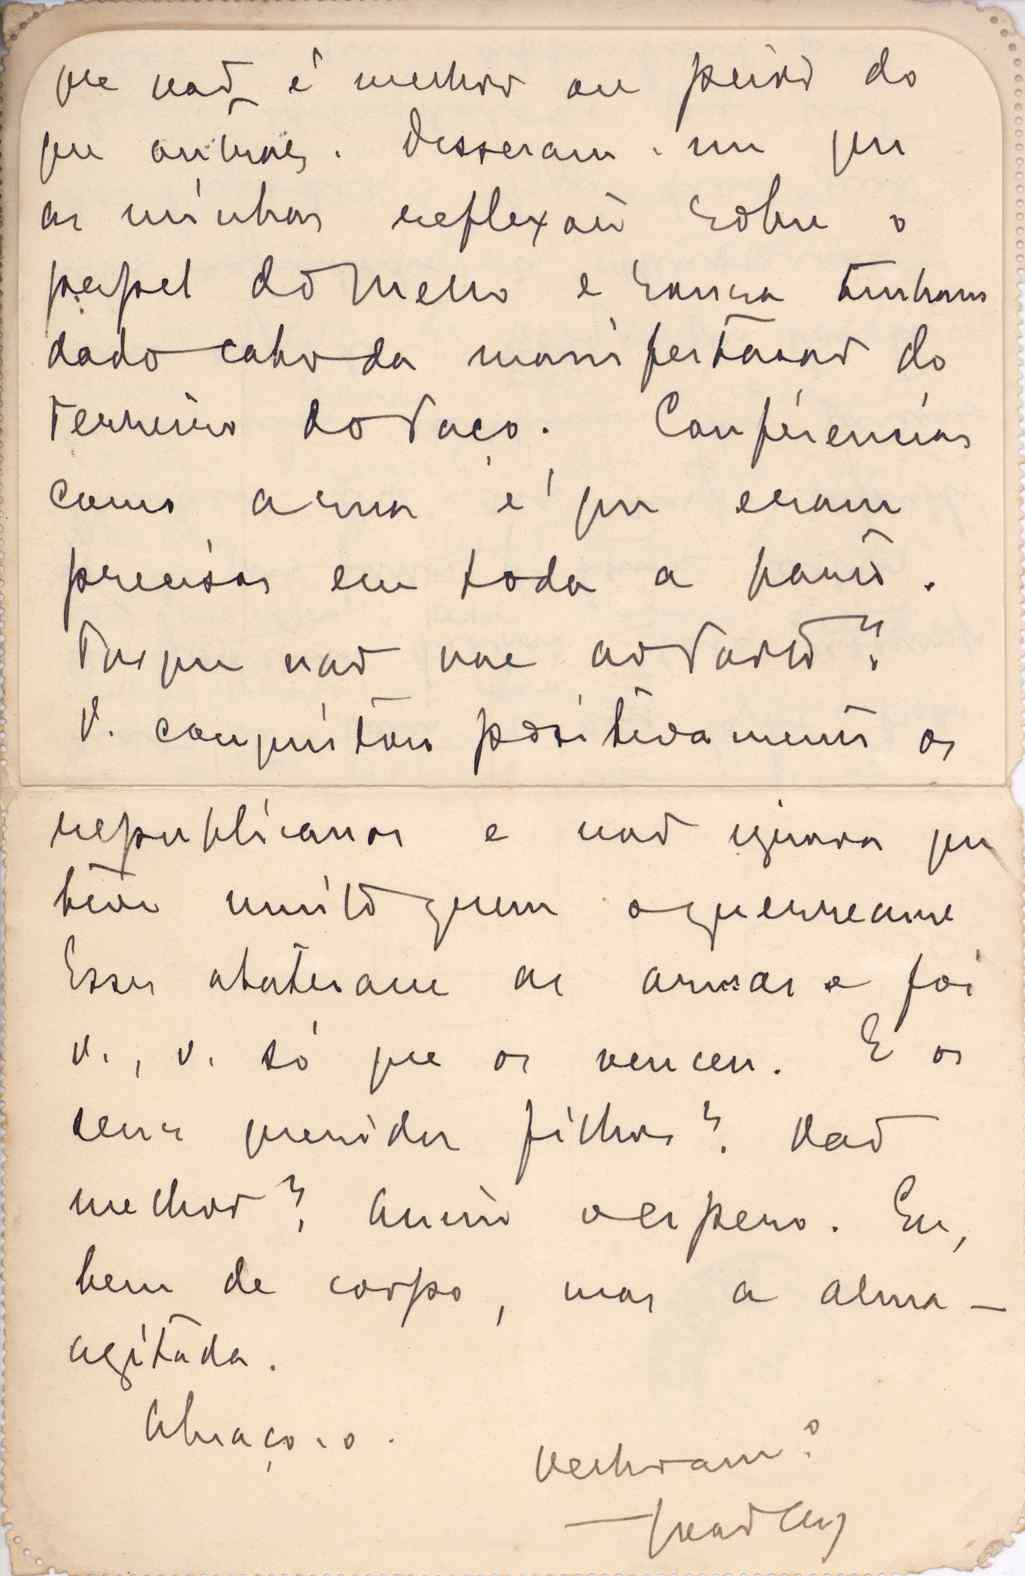 que não é melhor ou peior do
que outras. Disseram-me que
as minhas reflexões sobre o
papel do Mello e Souza tinham
dado cabo da manifestação do
Terreiro do Paço. Conferencias
como a sua é que eram
precisas em toda a parte.
Porque não vae ao Porto?
V. conquistou positivamente os
republicanos e não ignora que
teve muito quem o guerreasse
Esses abateram as armas e foi
v., v. só que os venceu. E os
seus queridos filhos? Vão
melhor? Assim o espero. Eu,
bem de corpo, mas a alma –
agitada.
Abraço-o.
João